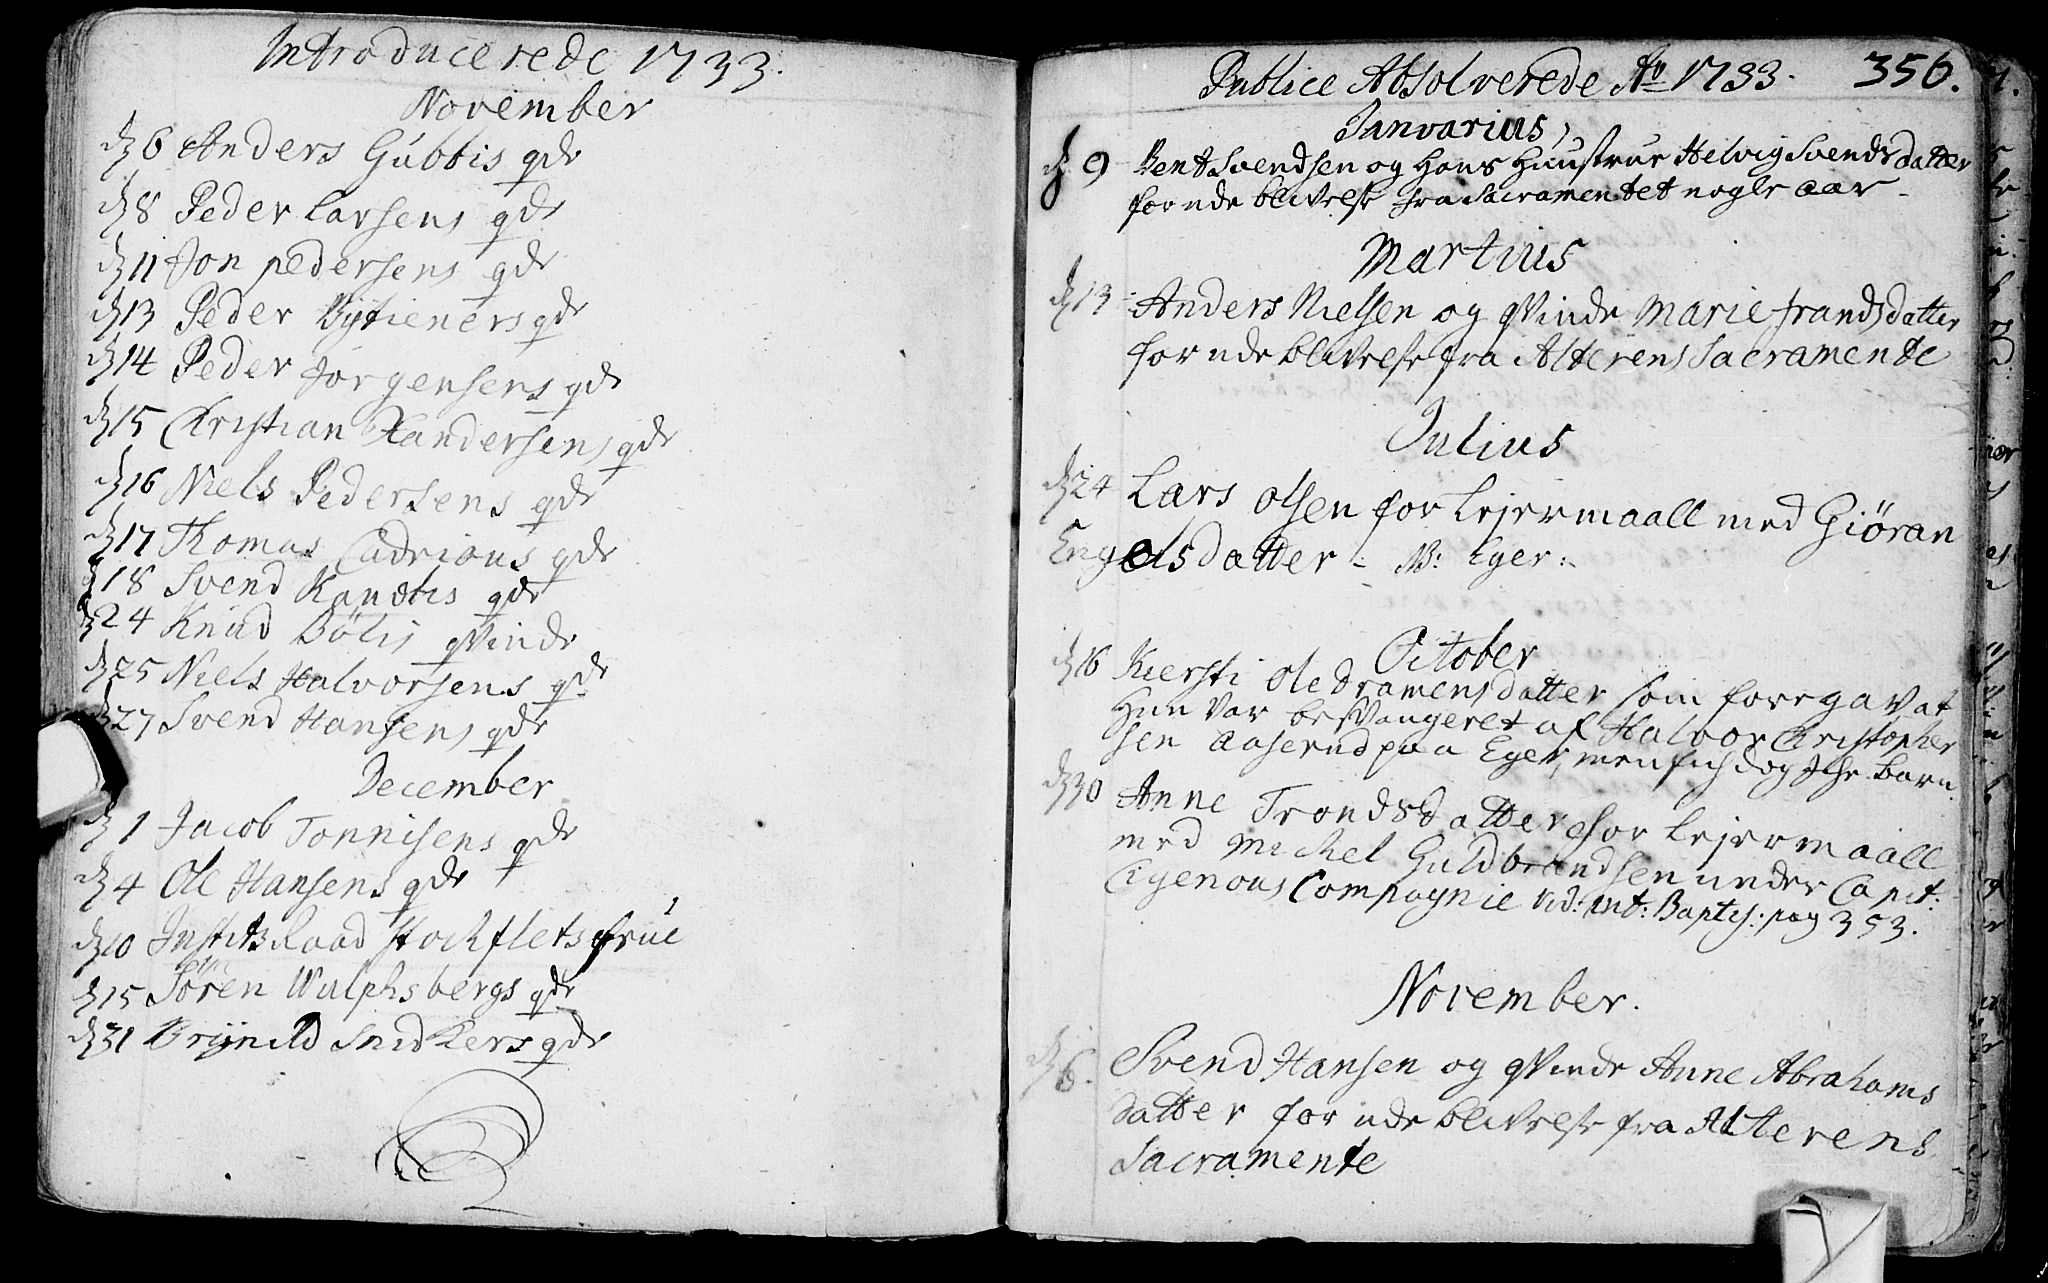 Introducerede 1733.
November
d 6 Anders Gubbis qde
d 8 Peder Larsens qde
d 11 Jon pedersens qde
d 13 Peder Bytieners qde
d 14 Peder Jörgensens qde
d 15 Christian Xandersens qde
d 16 Niels Pedersens qde
d 17 Thomas qde
d 18 Svend qde
d 24 Knud Bölis qvinde
d 25 Niels Halvorsens qde
d 27 Svend Hansens qde
December
d 1 Jacob Tonnisens qde
d 4 Ole Hansens qde
d 10 Raad Stockflets frue
d 15 Sören Wulphsbergs qde
d 31 Brynild Snidkers qde
Publice Absolverede Ao 1733. 356.
Janvarius,
d 9 Bent Svendsen og Hans Huustrue Helvig Svends datter
for udeblivelse fra Sacramentet nogle aar
Martius
d 13 Anders Nielsen og qvinde Marie frands datter
for udeblivelse fra Alterens Sacramente
Julius
d 24 Lars Olsen for Lejermaall med Giöran
Engelsdatter - NB: Eger :
October
d 16 Kiersti Ole Dramens datter som foregav at
Hun var besvangeret af Halvor Christopher
sen Aaserud paa Eger, men fich dog Iche barn.
d 30 Anne Tronds datter for Lejermaall
med Michel Guldbrandsen under Capit:
Compagnie vid: int: Baptis: pag 353.
November.
d 6. Svend Hansen og qvinde Anne Abrahams
datter for udeblivelse fra Alterens
Sacramente